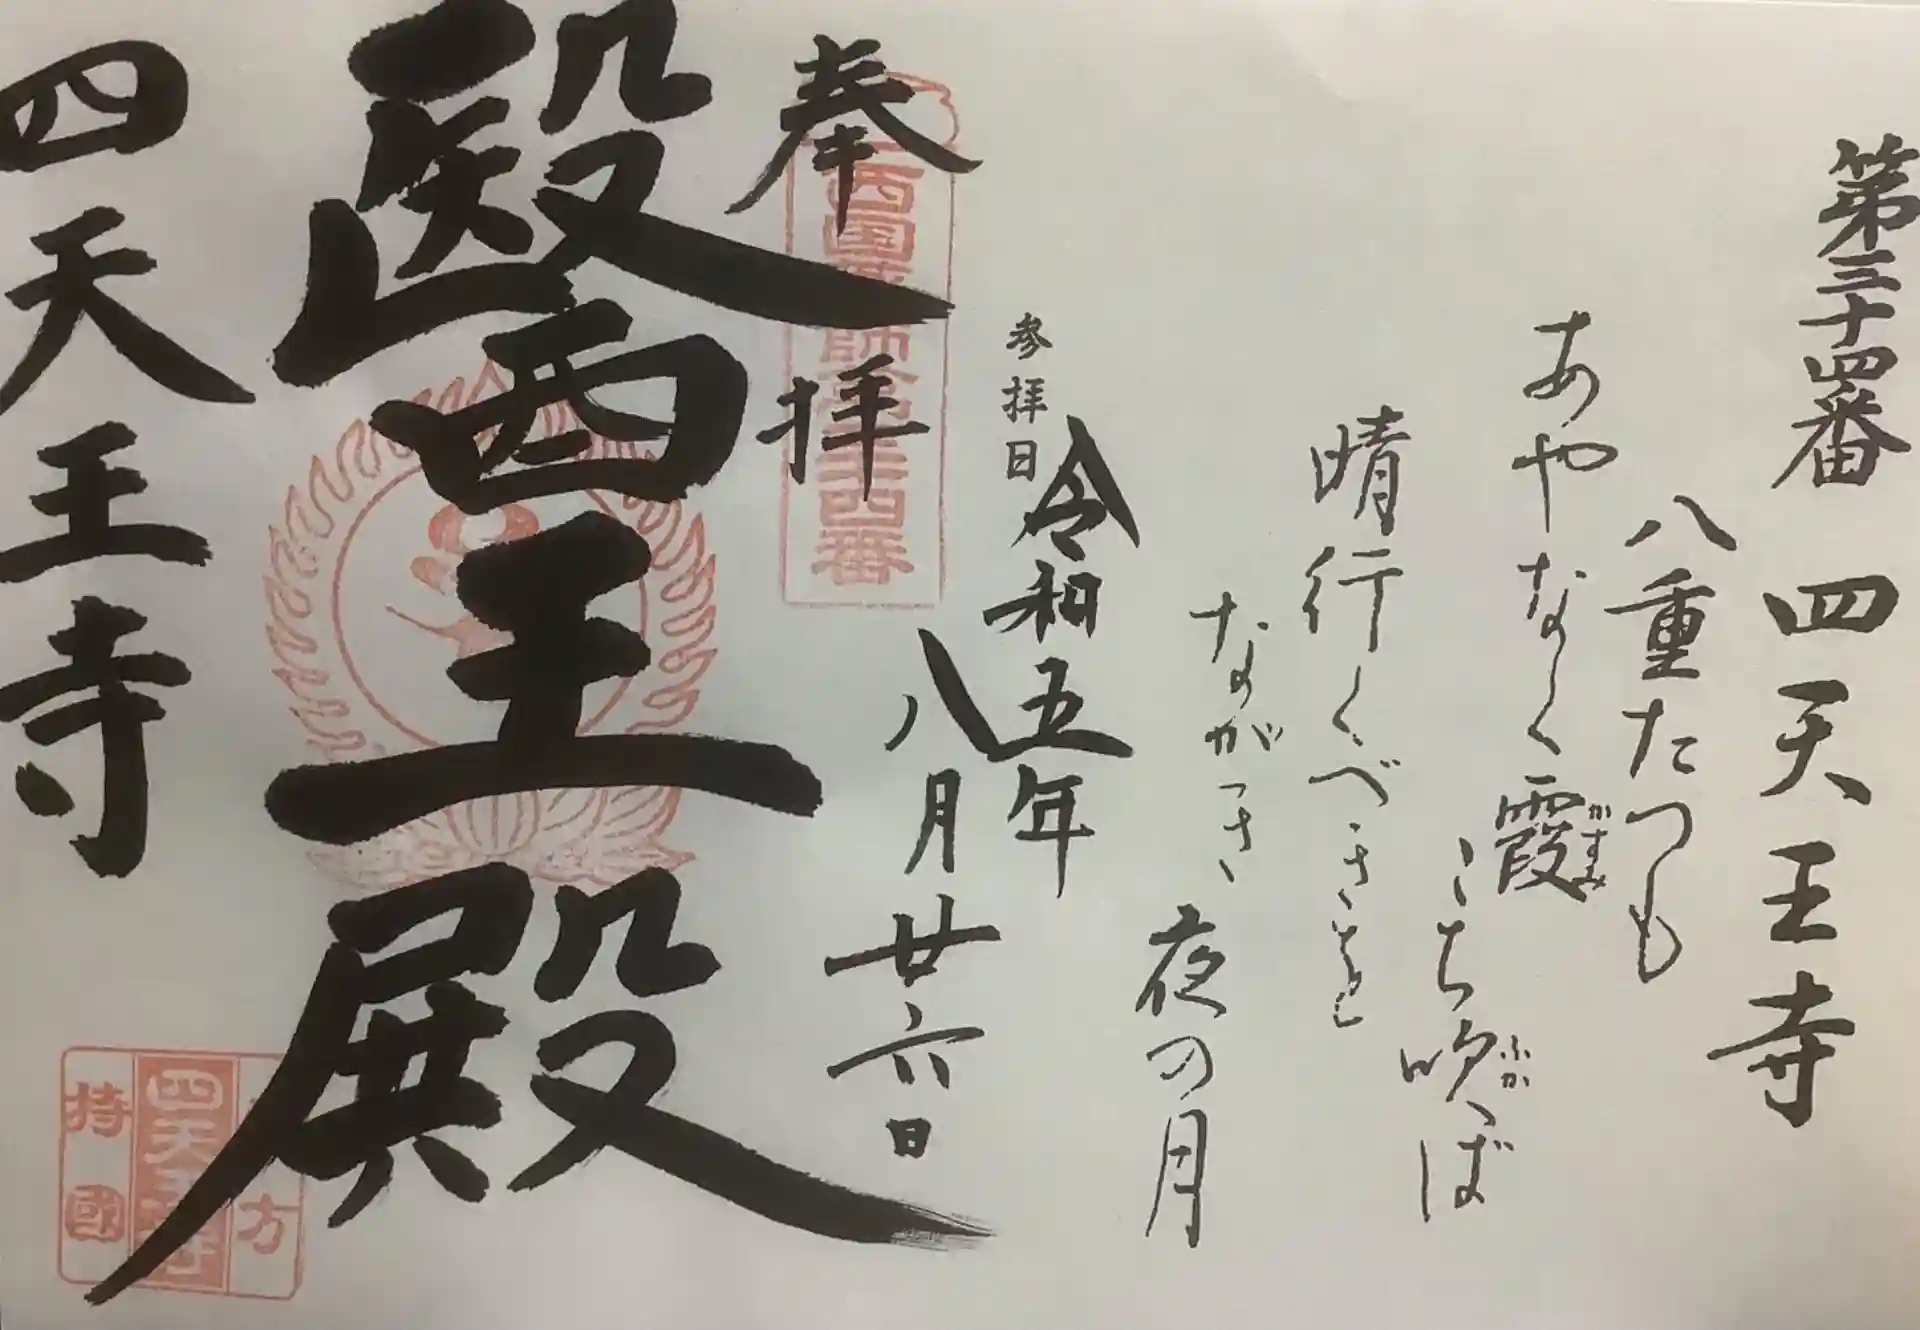 第三十四番 四天王寺
八重たつも
あやなく霞
かすみ
こち吹ば
ふか
晴行くべきを
ながき夜の月
参拝日
令和五年
八月廿六日
奉拝
西国薬師第三十四番
醫王殿
四天王寺
方
四天王寺
持國